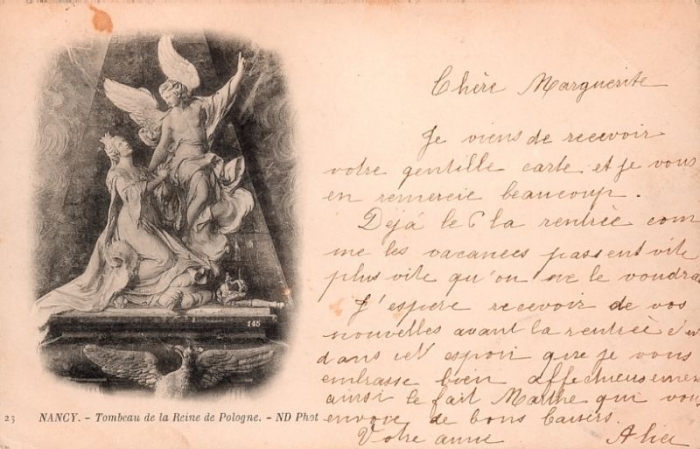 Chère Marguerite
Je viens de recevoir
votre gentille carte et je vous
en remercie beaucoup.
Déjà le 6 la rentrée com
me les vacances passent vite
plus vite qu'on ne le voudra
J'espère recevoir de vos
nouvelles avant la rentrée c'est
dans cet espoir que je vous
embrasse bien affectueusement
ainsi le fait Marthe qui vous
envoie de bons baisers
Votre amie Alice
145
23 NANCY. - Tombeau de la Reine de Pologne. - ND Phot